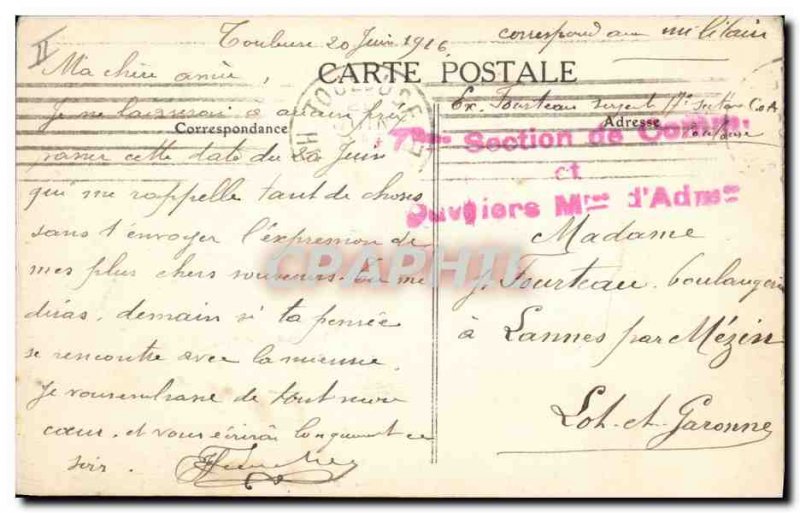 II
Toulouse 20 Juin 1916
correspondance militaire
Ma chère amie,
CARTE POSTALE
Je ne laisserai à aucun prix
Correspondance
passer cette date du 20 Juin
qui me rappelle tant de choses
sans t'envoyer l'expression de
mes plus chers souvenirs. Tu me
diras, demain si ta pensée
se rencontre avec la mienne.
Je vous embrasse de tout mon
cœur, et vous écrirai longuement ce
soir.
TOULOUSE
Ex. Fourteau sergent 17e section C.O.A.
Adresse
Toulouse
17me Section de Comm.
et
Ouvriers Mres d'Admon
Madame
J. Fourteau. boulangerie
à Lannes par Mézin
Lot-et-Garonne
CPAPHIL